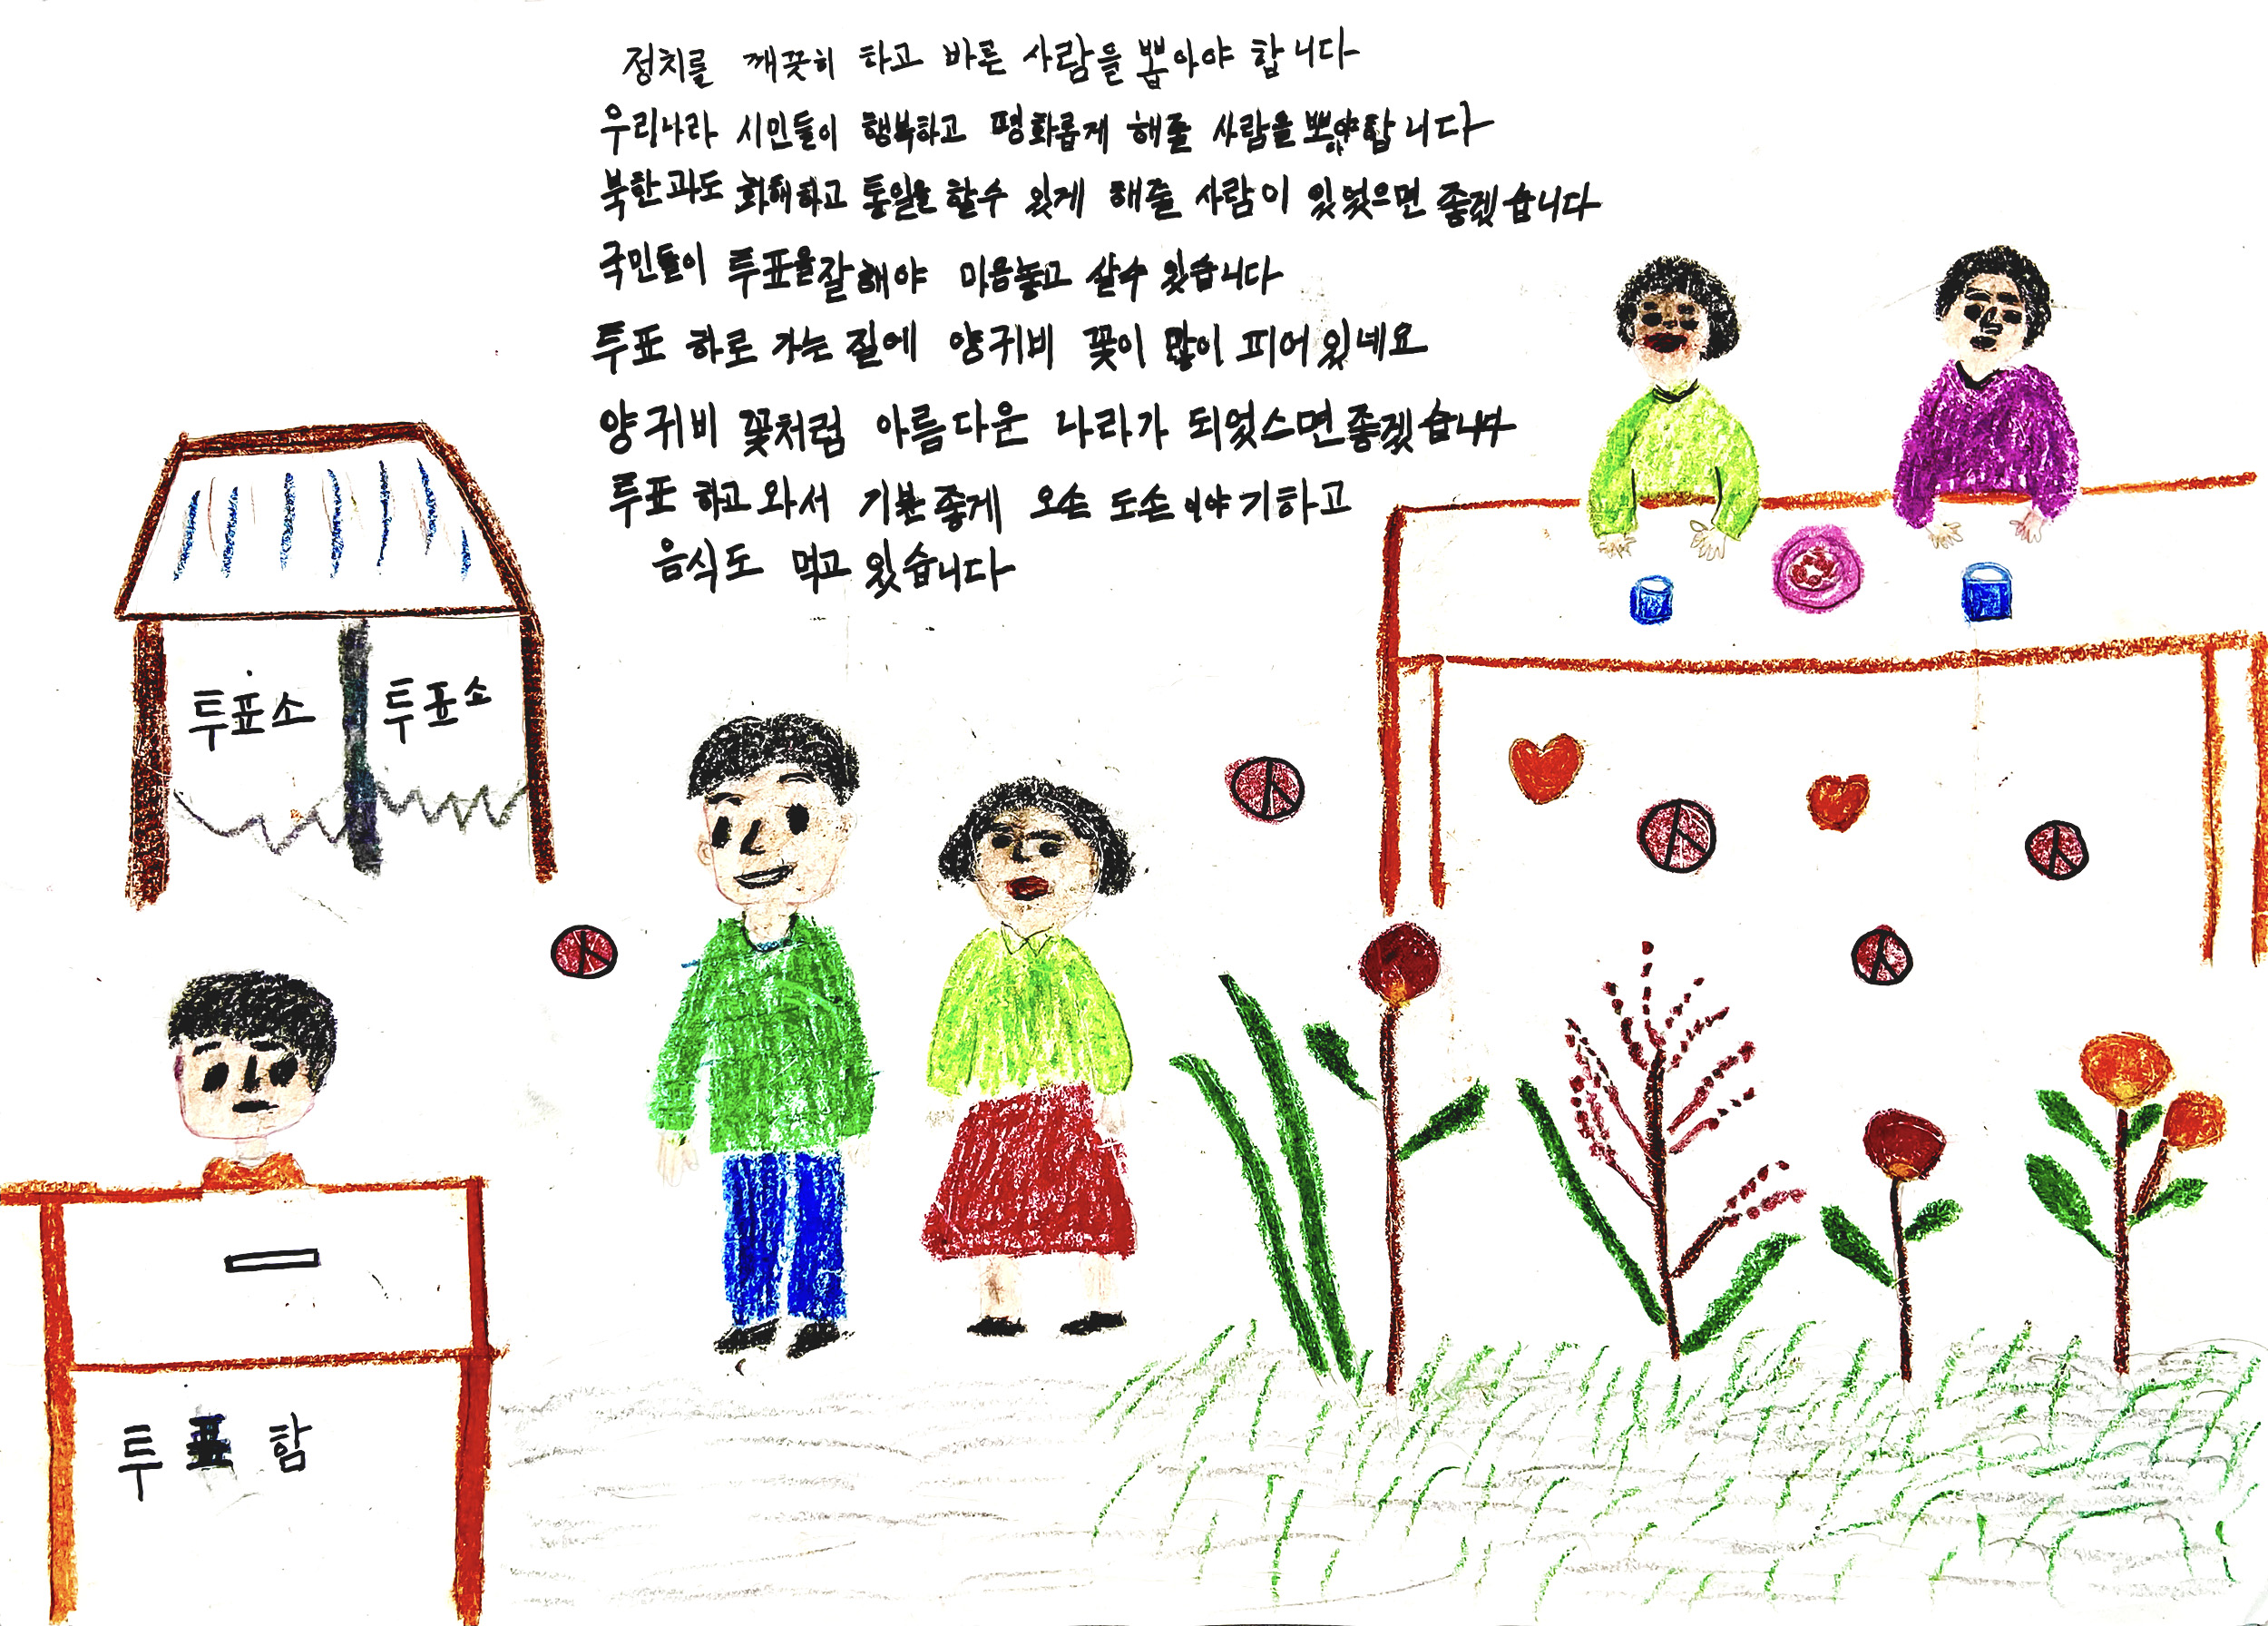 정치를 깨끗히 하고 바른 사람을 뽑아야 합니다
우리나라 시민들이 행복하고 평화롭게 해줄 사람을 뽀아야합니다
북한과도 화해하고 통일을 할수 있게 해줄 사람이 있었으면 좋겠습니다
국민들이 투표을잘해야 마음놓고 살수 있습니다
투표 하로 가는 길에 양귀비 꽃이 많이 피어있네요
양귀비 꽃처럼 아름다운 나라가 되었스면좋겠습니다
투표 하고 와서 기분좋게 오손 도손 이야기하고
음식도 먹고 있습니다
투표소 투표소
투표함